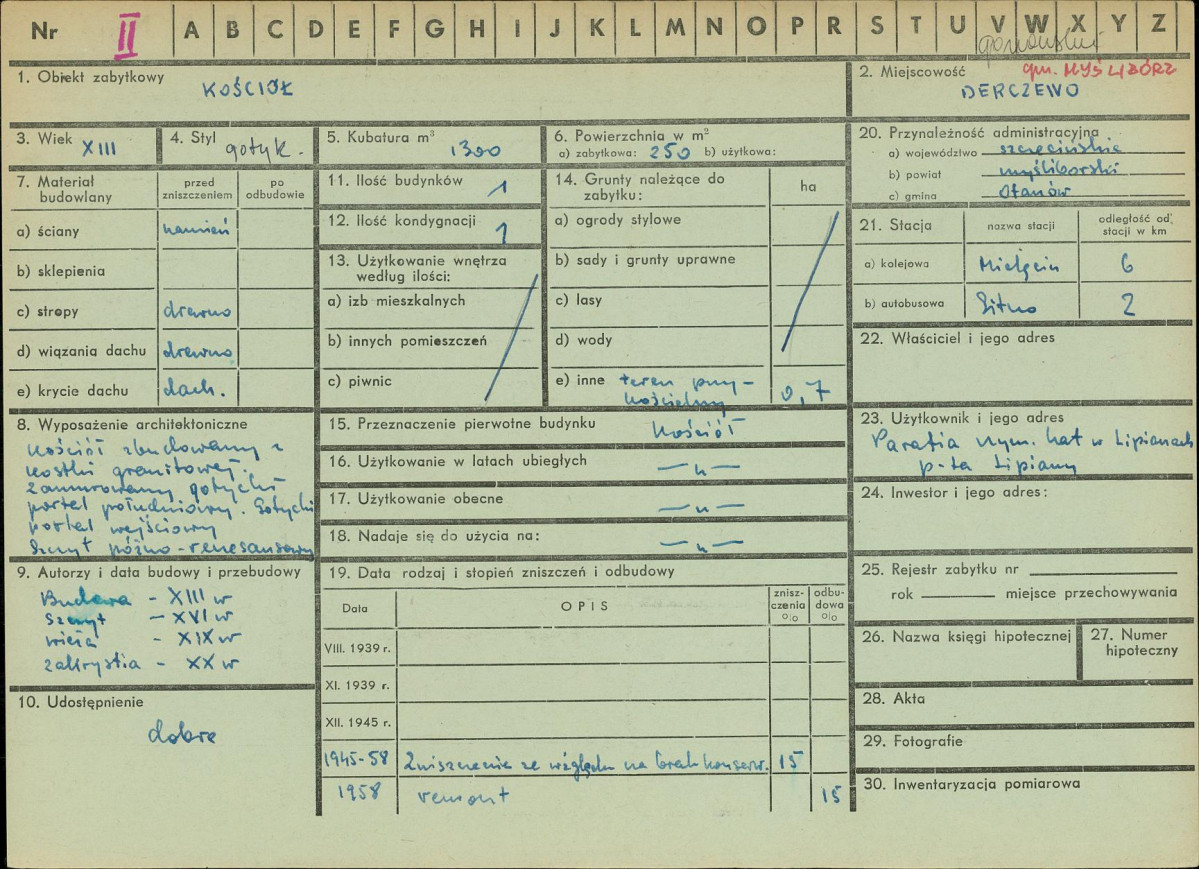 Nr II A B C D E F G H I J K L M N O P R S T U V W X Y Z
gorzowskie
1. Obiekt zabytkowy
KOŚCIÓŁ
2. Miejscowość gm. MYŚLIBÓRZ
DERCZEWO
3. Wiek XIII
4. Styl gotyk.
5. Kubatura m³
1300
6. Powierzchnia w m²
a) zabytkowa: 250 b) użytkowa:
20. Przynależność administracyjna
a) województwo szczecińskie
b) powiat myśliborski
c) gmina Otanów
7. Materiał budowlany
przed zniszczeniem
po odbudowie
a) ściany kamień
b) sklepienia
c) stropy drewno
d) wiązania dachu drewno
e) krycie dachu dach.
11. Ilość budynków 1
12. Ilość kondygnacji 1
13. Użytkowanie wnętrza
według ilości:
a) izb mieszkalnych
b) innych pomieszczeń
c) piwnic
14. Grunty należące do
zabytku:
ha
a) ogrody stylowe
b) sady i grunty uprawne
c) lasy
d) wody
e) inne teren przy-
kościelny 0,7
21. Stacja
nazwa stacji
odległość od
stacji w km
a) kolejowa Mielęcin 6
b) autobusowa Sitno 2
22. Właściciel i jego adres
8. Wyposażenie architektoniczne
Kościół zbudowany z
kostki granitowej.
Zamurowany gotycki
portal południowy. Gotycki
portal wejściowy
Szczyt późno-renesansowy
15. Przeznaczenie pierwotne budynku Kościół
16. Użytkowanie w latach ubiegłych —"—
17. Użytkowanie obecne —"—
18. Nadaje się do użycia na: —"—
23. Użytkownik i jego adres
Parafia rzym. kat w Lipianach
p-ta Lipiany
24. Inwestor i jego adres:
9. Autorzy i data budowy i przebudowy
Budowa - XIII w
Szczyt - XVI w
wieża - XIX w
zakrystia - XX w
10. Udostępnienie
dobre
19. Data rodzaj i stopień zniszczeń i odbudowy
Data
OPIS
znisz-
czenia
%
odbu-
dowa
%
VIII. 1939 r.
XI. 1939 r.
XII. 1945 r.
1945-58 Zniszczenie ze względu na brak konserw. 15
1958 remont 15
25. Rejestr zabytku nr
rok miejsce przechowywania
26. Nazwa księgi hipotecznej
27. Numer
hipoteczny
28. Akta
29. Fotografie
30. Inwentaryzacja pomiarowa